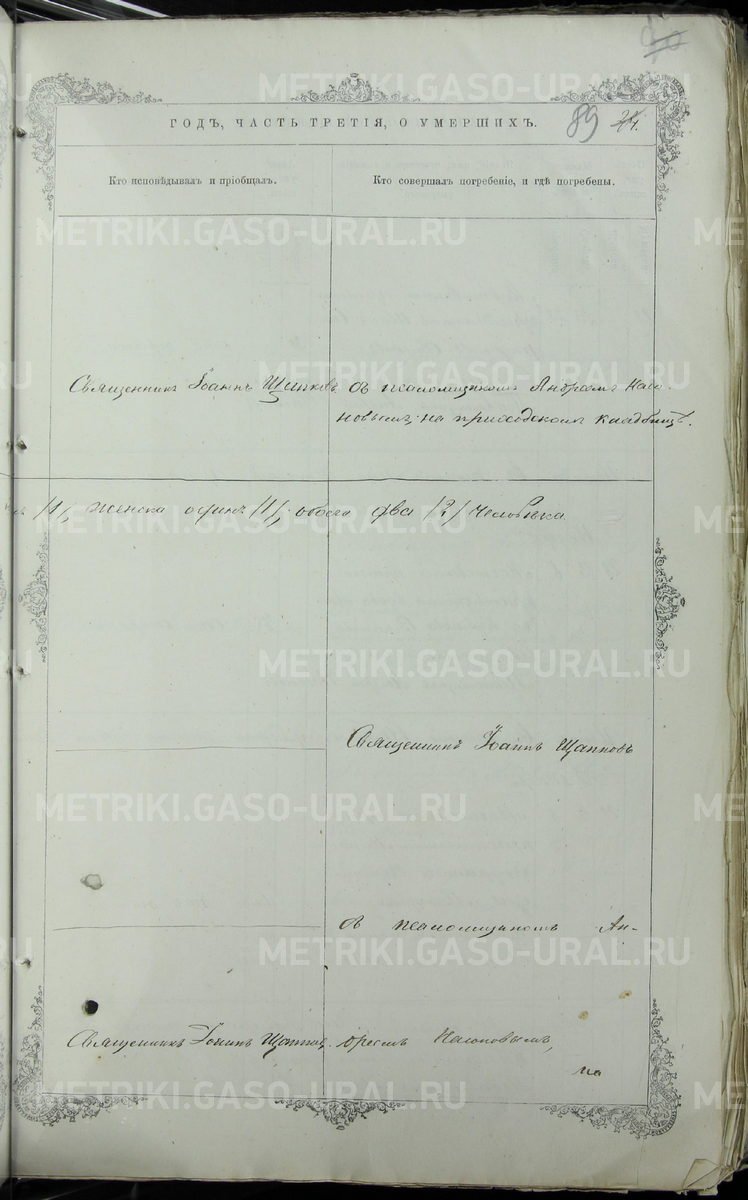 89
ГОДЪ, ЧАСТЬ ТРЕТІЯ, О УМЕРШИХЪ.
Кто исповѣдывалъ и пріобщалъ.
Кто совершалъ погребеніе, и гдѣ погребены.
Священникъ Іоаннъ Щаповъ съ псаломщикомъ Андреемъ
новымъ, на приходскомъ кладбищѣ.
/1/, женска одинъ /1/; обоего два /2/ человѣка
Священникъ Іоаннъ Щаповъ
съ псаломщикомъ Ан-
Священникъ Іоаннъ Щаповъ. дреемъ
на
METRIKI.GASO-URAL.RU